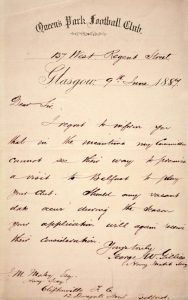 Queens Park Football Club.
157 West Regent Street
Glasgow, 9th June 1887
Dear Sir,
I regret to inform you
that in the meantime my Committee
cannot see their way to promise
a visit to Belfast to play
your Club. Should any vacant
date occur during the season
your application will again receive
their consideration.
Yours truly
George W.
Hony
Esq.
Cliftonville F. C.
Belfast